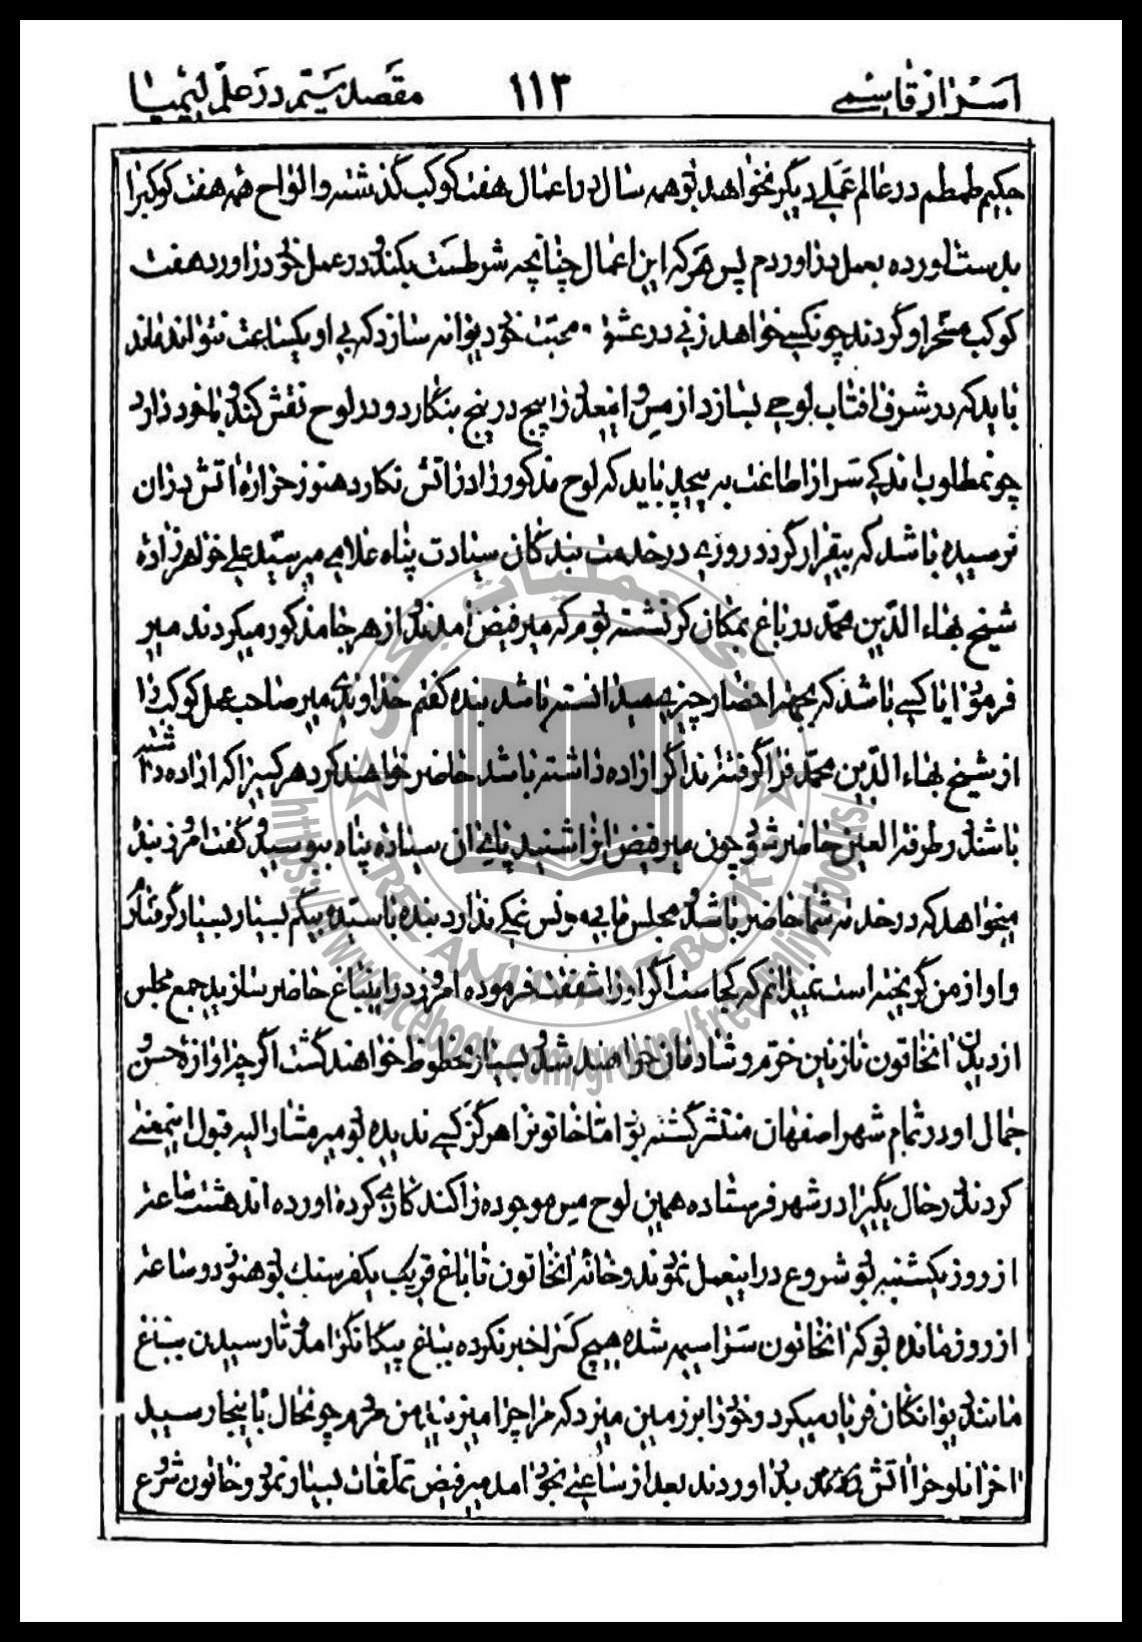 اسرار قاسمی ١١٣ مقصد سیم در علم لیمیا
حکیم طمطم در عالم عملی دیگر نخواهد بود همه سال در اعمال هفت کوکب گذشته و الواح همه هفت کوکب را
بدست اورده بعمل در اوردم پس هر که این اعمال چنانچه شرطست بکند و در عمل خود در اورد هفت
کوکب مسخر او گردند چون کسی خواهد زنی در عشق و محبت خود دیوانه سازد که بی او یکساعت نتواند ماند
باید که در شرف افتاب لوحی بسازد از مس و اینعدد را پنج در پنج بنگارد و در لوح نقش کند و با خود دارد
چون مطلوب اندکی سر از اطاعت به پیچد باید که لوح مذکور را در اتش نگارد هنوز حرارة اتش بدان
نرسیده باشد که بیقرار گردد روزی در خدمت بندگان سیادت پناه علامی میر سید علی خواهرزاده
شیخ بهاء الدین محمد در باغ بمکان کر نشسته بودم که میر فیض امدند و از هر جا مذکور میکردند میر
فرمود ایا کسی باشد که بجهة احضار چیزی میدانسته باشد بنده گفتم خداوندی میر صاحب عمل کوکب را
از شیخ بهاء الدین محمد فرا گرفته اند اگر اراده داشته باشد حاضر خواهند کرد هر کسیرا که اراده داشته
باشد در طرفة العین حاضر شود چون میر فیض انرا شنید پای ان سیادة پناه ببوسید و گفت امروز بنده
میخواهد که در خدمة شما حاضر باشد و مجلس ما بی مونس نمکی ندارد بنده با ستیده بیگم بسیار بسیار گرفتار
و او از من گریخته است نمیدانم که کجاست اگر او را شفقت فرموده امروز در اینباغ حاضر سازید جمع مجلس
از دیدن انخاتون نازنین خرم و شادمان خواهند شد و بسیار محظوظ خواهند گشت اگر چه اوازه حسن و
جمال او در تمام شهر اصفهان منتشر گشته بود اما خاتون را هرگز کسی ندیده بود میر مشار الیه قبول اینمعنی
کردند در حال یکیرا در شهر فرستاده همین لوح مس موجوده را کنده کاری کرده اورده اند هشت ساعة
از روز یکشنبه بود شروع در اینعمل نمودند و خانه انخاتون تا باغ قریب یکفرسنک بود هنوز دو ساعة
از روز مانده بود که انخاتون سراسیمه شده هیچ کس را خبر نکرده بباغ پیکانگر امد تا رسیدن بباغ
مانند دیوانکان فریاد میکرد و خود را بر زمین میزد که مرا چرا میزنید من خودم چون حال باینجا رسید
اخر ان لوح را از اتش بدر اوردند بعد از ساعتی بخود امد میر فیض تملقات بسیار نمود و خاتون شروع
FREE AMLIYAAT BOOKS
https://www.facebook.com/groups/freeamliyatbooks/